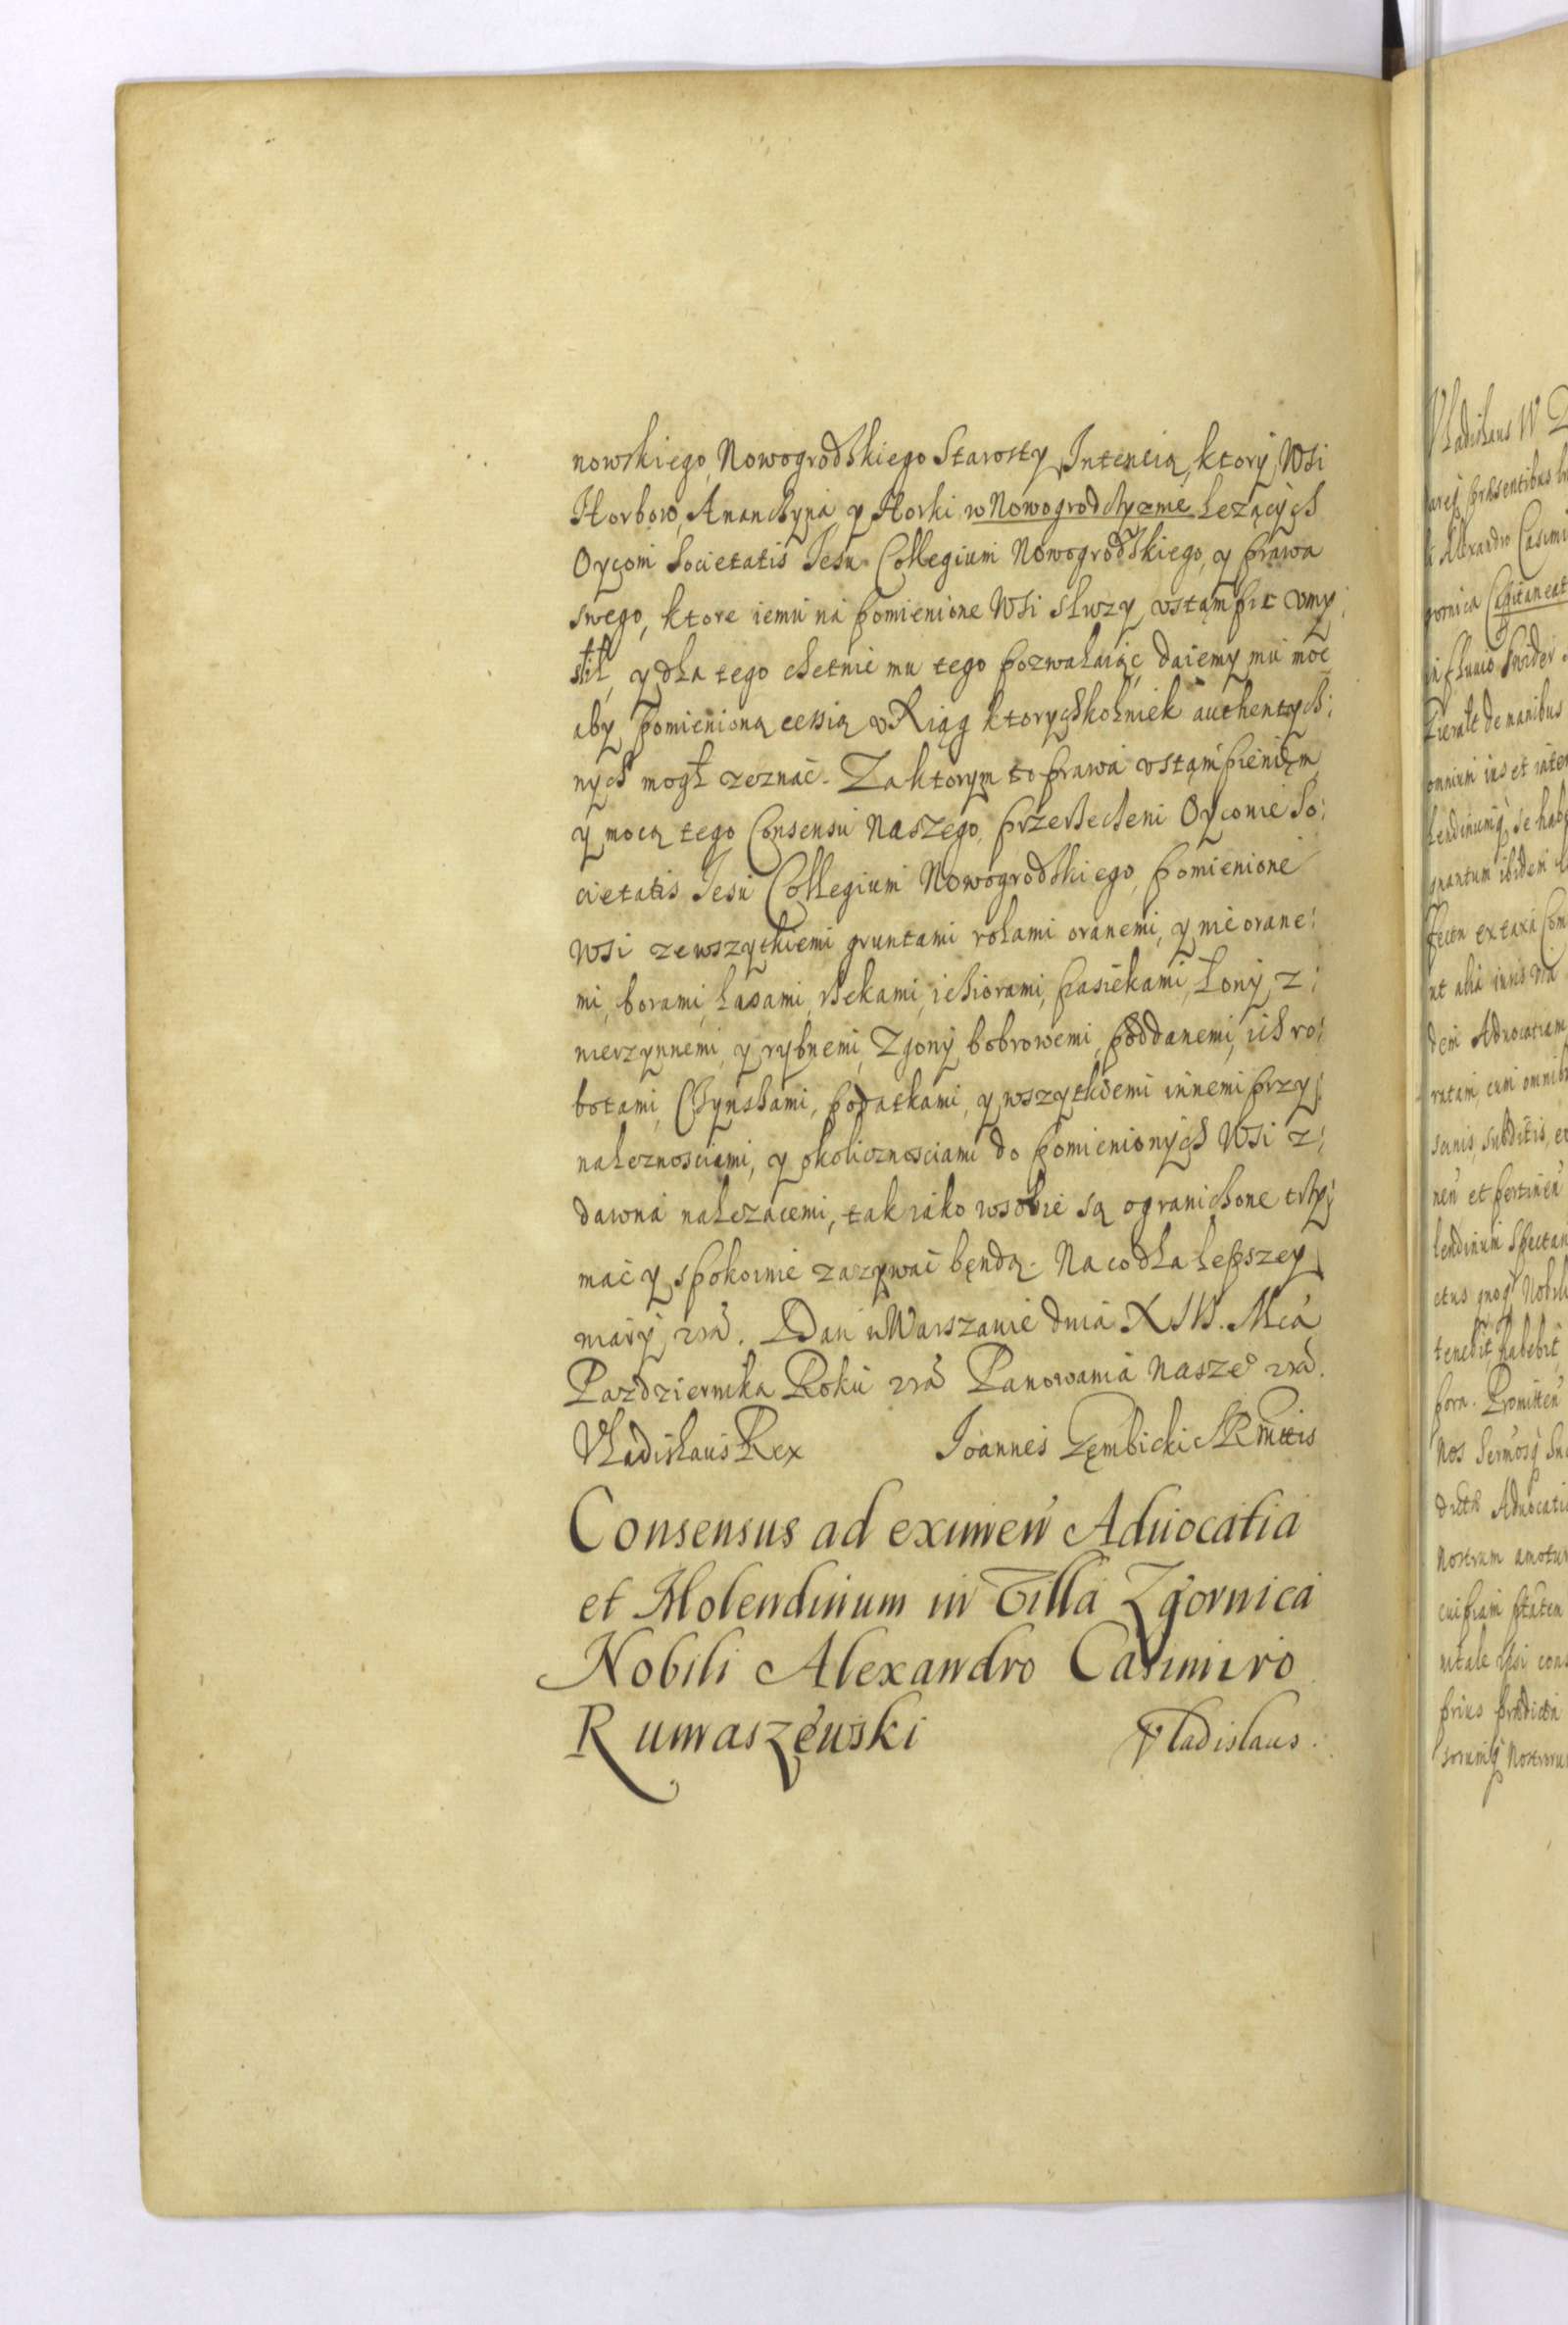 nowskiego, Nowogrodskiego Starosty Intencią, ktory Wsi
Horbow, Ananczyna y Horki w Nowogrodczyznie lezących
Oycom Societatis Jesu Collegium Nowogrodskiego, y prawa
swego, ktore iemu na pomienione Wsi służy vstąmpić vmy:
slił, y dla tego chetnie mu tego pozwalaiąc daiemy mu moc
aby pomienioną cessią v Xiąg ktorychkolwiek authentycz:
nych mogł zeznać. Za ktorym to prawa vstąmpieniem
y mocą tego Consensu Naszego, przerzecheni Oycowie So:
cietatis Jesu Collegium Nowogrodskiego, pomienione
Wsi ze wszytkiemi gruntami rolami oranemi, y nieorane:
mi, borami, lasami, rzekami, ieziorami, pasiekami, Łony, z:
wierzynnemi, y rybnemi, Zgony bobrowemi, poddanemi, ich ro:
botami, Czynszami, podatkami, y wszytkiemi innemi przy:
naleznosciami, y okolicznosciami do pomienionych Wsi z:
dawna nalezącemi, tak iako w sobie są ograniczone trzy:
mać y spokoinie zazywać bęndą. Na co dla lepszey
wiary etc. Dan w Warszawie dnia XIV. Mca
Pazdziernika Roku etc Panowania Naszego etc.
Vladislaus Rex Joannes Zęmbicki SRMttis
Consensus ad eximen Aduocatia
et Molendinum in Villa Zgornica
Nobili Alexandro Casimiro
Rumaszewski Vladislaus.
Vladislaus IV D
præsentibus
Alexandro Casimi
gornica Capitaneat
in fluuio Swider
de manibus
omnium ius et
se hab
quantum ibidem
ex taxa Com
ut alia iuris
dem Aduocatiam
cum omnib
subditis, et
et pertinen
Spectan
Nobili
tenebit, habebit
Promitten
Nos
Aduocatia
Nostrum amotur
cuipiam
cons
prius prædictæ
Nostrorum